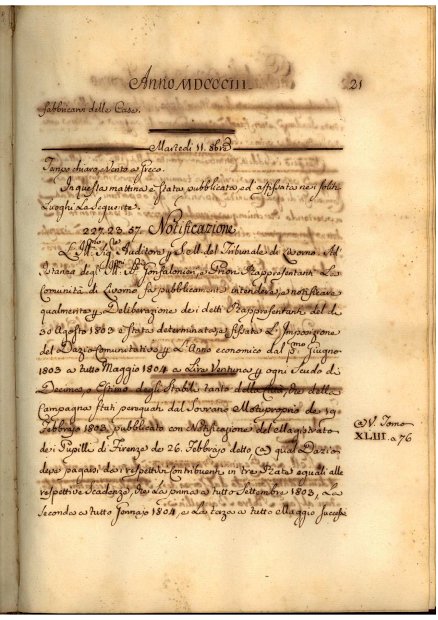 Anno MDCCCIII 21
fabbricarvi delle Case.
Martedì 11. 8bre
Tempo chiaro, Vento a Greco.
In questa mattina è stata pubblicata ed affissata nei soliti
Luoghi La Seguente
227.23.57. Notificazione
L'Ill.mo Sig.re Auditore di S. M. del Tribunale di Livorno Ad
Istanza degl'Ill.mi SS. Gonfaloniere, e Priori Rappresentanti La
Comunità di Livorno fa pubblicamente intendere, e notificare
qualmente Deliberazione dei detti Rappresentanti del dì
30 Agosto 1803 è stata determinata, e fissata L'Imposizione
del Dazio Comunitativo L'Anno economico dal p.mo Giugno
1803 a tutto Maggio 1804 a Lire Ventuna ogni Scudo di
Decima, o Estimo degli Stabili tanto della Città, che della
Campagna stati perequati dal Sovrano Motuproprio de 19.
Febbrajo 1803. pubblicato con Notificazione del Magistrato
dei Pupilli di Firenze de 26. Febbrajo detto (a) qual Dazio
deve pagarsi dai respettivi Contribuenti in tre Rate eguali alle
respettive Scadenze, cioè La prima a tutto Settembre 1803, La
Seconda a tutto Gennajo 1804, e La terza a tutto Maggio
(a) V. Tomo
XLIII. a 76